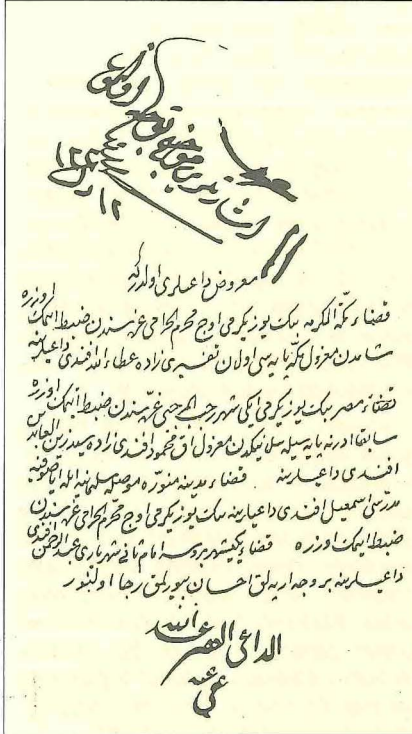 اشارتلری موجبنجه توجیه اولنمق
١٢ را ١١٢٢
معروض داعیلری اولدر که
قضاء مکّة المکرمه بیک یوز یکرمی اوج محرم الحرامی غرّه سندن ضبط ایتمک اوزره
شامدن معزول مکّه پایه سی اولان تفسیری زاده عطاء الله افندی داعیلرینه
قضاء مصر بیک یوز یکرمی ایکی شهر رجب المرجبی غرّه سندن ضبط ایتمک اوزره
سابقا ادرنه پایه سیله سلانیکدن معزول اق محمود افندی زاده سید زین العابدین
افندی داعیلرینه قضاء مدینه منوّره موصله سلیمانیه ایله ایاصوفیه
مدرّسی اسمعیل افندی داعیلرینه بیک یوز یکرمی اوج محرّم الحرامی غرّه سندن
ضبط ایتمک اوزره قضاء یکیشهر بروسه امام ثانئ شهریاری عبد الرحمن افندی
داعیلرینه بر وجه ارپه لق احسان بیورلمق رجا اولنور
الداعی الفقیر عبد الله
عفی عنه